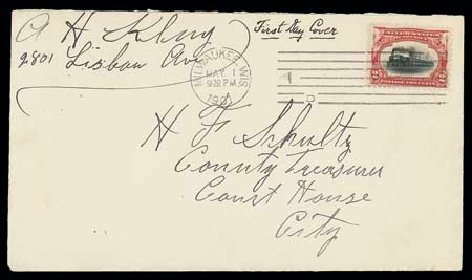 A H Kling
2801 Lisbon Ave
First Day Cover
MILWAUKEE, WIS.
MAY 1
1901
1
D
2 2
H F Schultz
County Treasurer
Court House
City